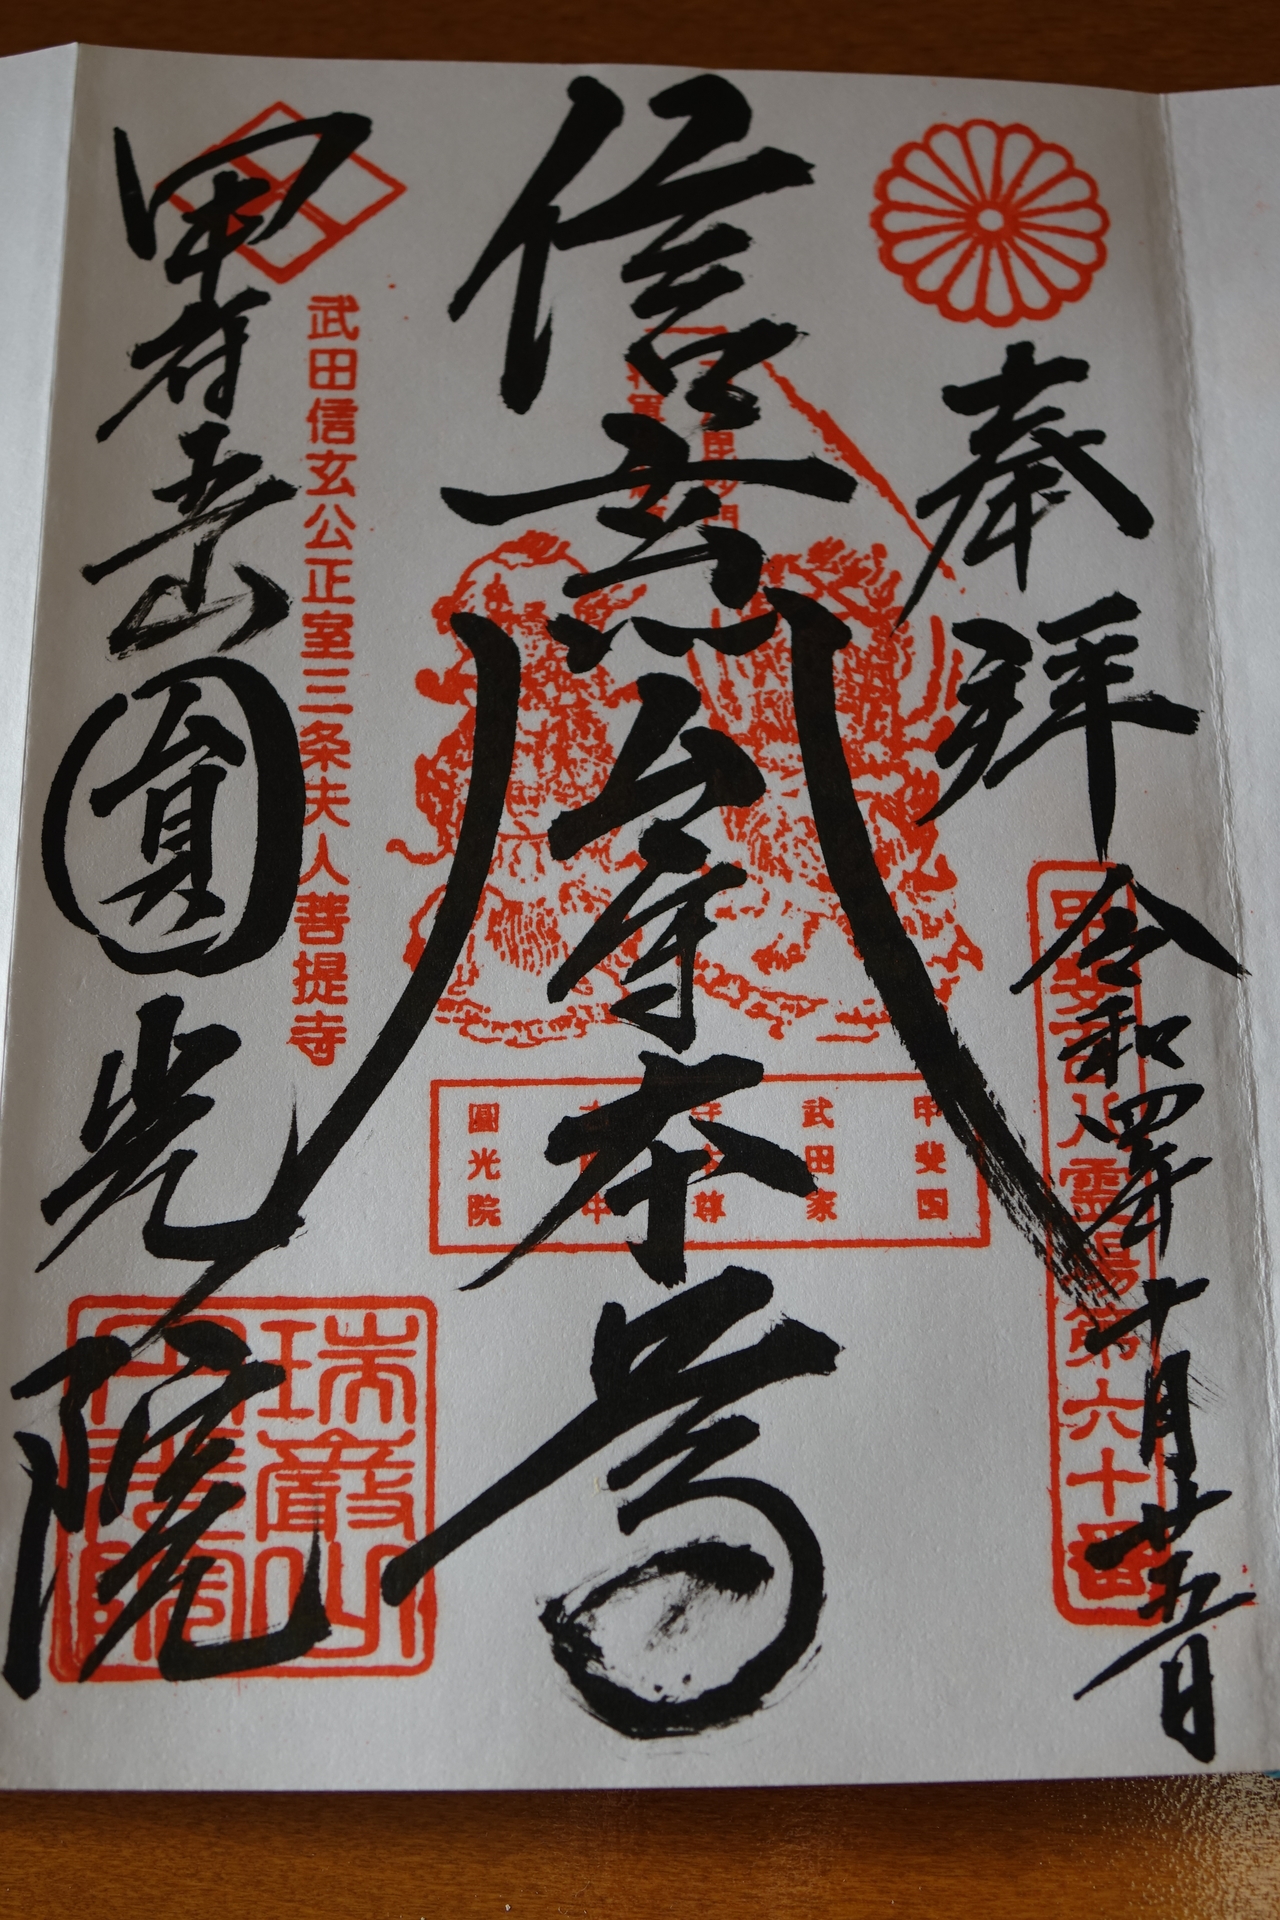 奉拝
令和四年十月廿五日
甲斐百八霊場第六十番
信玄公守本尊
甲斐国
武田家
圓光院
武田信玄公正室三条夫人菩提寺
甲府五山圓光院
瑞巖山
圓光院